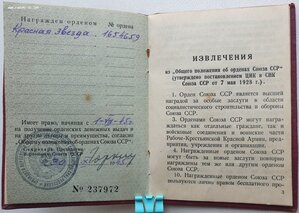 Награжден орденом № ордена
Красная Звезда. 1654659
Имеет право, начиная с 1-VII-45 г.
на получение орденских денежных выдач и
на другие льготы и преимущества, согласно
„Общему положению об орденах Союза ССР“
Секретарь Президиума
Верховного Совета СССР
№ 237972
ИЗВЛЕЧЕНИЯ
из „Общего положения об орденах Союза ССР“
(утверждено постановлением ЦИК и СНК
Союза ССР от 7 мая 1936 г.).
1. Орден Союза ССР является высшей
наградой за особые заслуги в области
социалистического строительства и обороны
Союза ССР.
3. Орденами Союза ССР могут награ-
ждаться как отдельные граждане, так
и войсковые единения и воинские части
Рабоче-Крестьянской Красной Армии,
предприятия, учреждения и организации.
9. Награжденные орденом Союза ССР
могут быть за новые заслуги вновь
повторно награждены тем же или другим
орденом Союза ССР.
10. Награжденные орденом Союза ССР
пользуются лично правом бесплатного про-